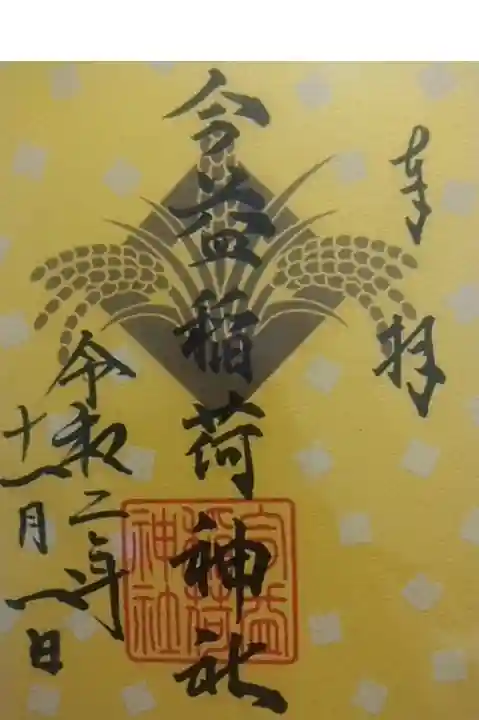 奉拝
益稲荷神社
益
稲荷
神社
令和二年
十一月一日